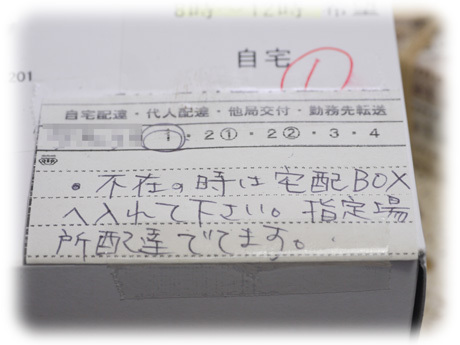 8時〜12時 希望
自宅 1
201
自宅配達・代人配達・他局交付・勤務先転送
1・2①・2②・3・4
• 不在の時は宅配BOX
へ入れて下さい。指定場
所配達ででてます。